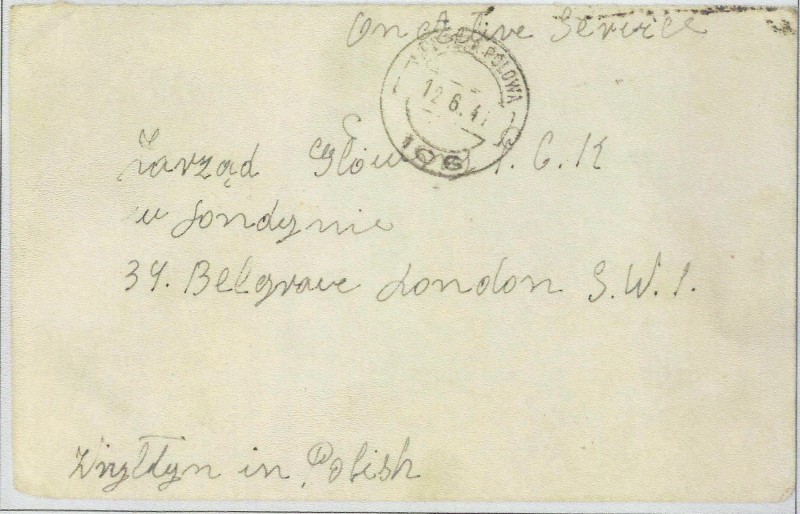 On Active Service
POCZTA POLOWA
12.6.41
106
Zarząd Główny P. C. K
w Londynie
34. Belgrave London S. W. 1.
in Polish